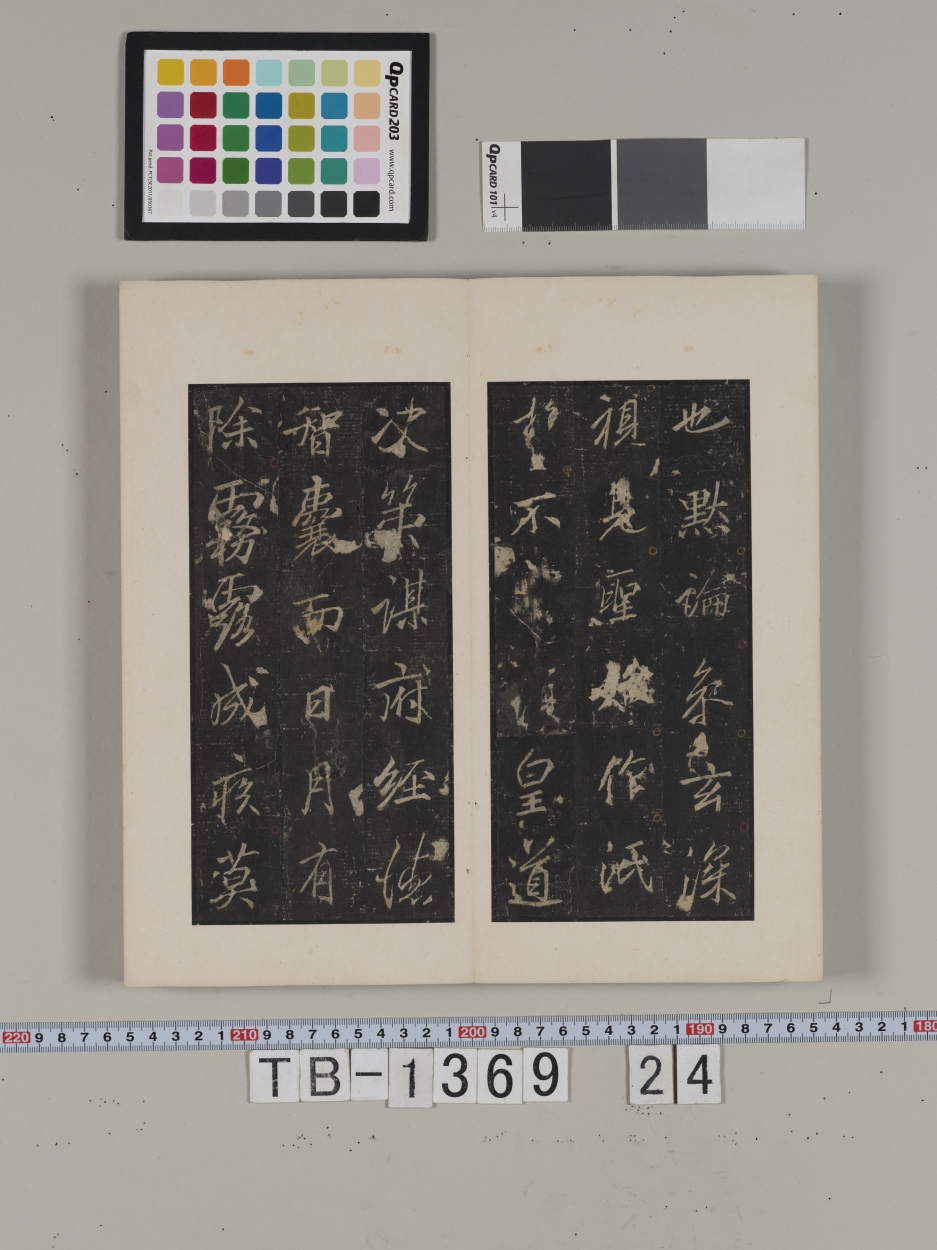 QPCARD 203 www.qpcard.com
QPCARD 101 v4
也默論玄深
視見聖始作泯
於不須皇道
決策謀府經
智囊而日月有
除霧露成疾莫
220 9 8 7 6 5 4 3 2 1 210 9 8 7 6 5 4 3 2 1 200 9 8 7 6 5 4 3 2 1 190 9 8 7 6 5 4 3 2 1 180
TB-1369 24